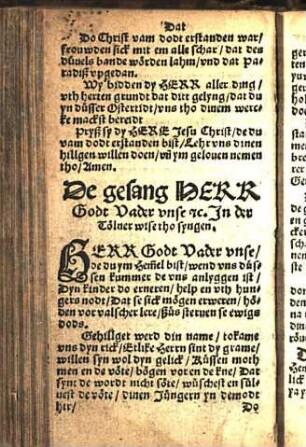 Dat
Do Christ vam dodt erstanden war/
frouwden sick mit em alle schar/ dat des
düuels bande wörden lahm/ vnd dat Pa-
radiß vpgedan.
Wy bidden dy HERR aller ding/
vth herten grundt dat ditt gelyng/ dat du
yn düsser Ostertidt/ vns tho dinem werc-
ke mackst bereidt
Pryß sy dy HERE Jesu Christ/ de du
vam dodt erstanden bist/ Lehr vns dinen
hilligen willen doen/ vñ yn gelouen nemen
tho/ Amen.
De gesang HERR
Godt Vader vnse ꝛc. In der
Tölner wise tho syngen.
HERR Godt Vader vnse/
de du ym Hemel bist/ wend vns düs-
sen kummer de vns anlyggen ist/
Dyn kinder do erneren/ help en vth hun-
gers nodt/ Dat se sick mögen erweren/ hö-
den vor valscher lere/ süs steruen se ewigs
dods.
Gehilliget werd din name/ tokame
vns dyn rick/ Etlike Herrn sint dy grame/
willen syn wol dyn gelick/ Küssen moth
men en de vöte/ bögen vor en de kne/ Dat
synt de wordt nicht söte/ wüschest en sül-
uest de vöte/ dinen Jüngern yn demodt
hir/
Do